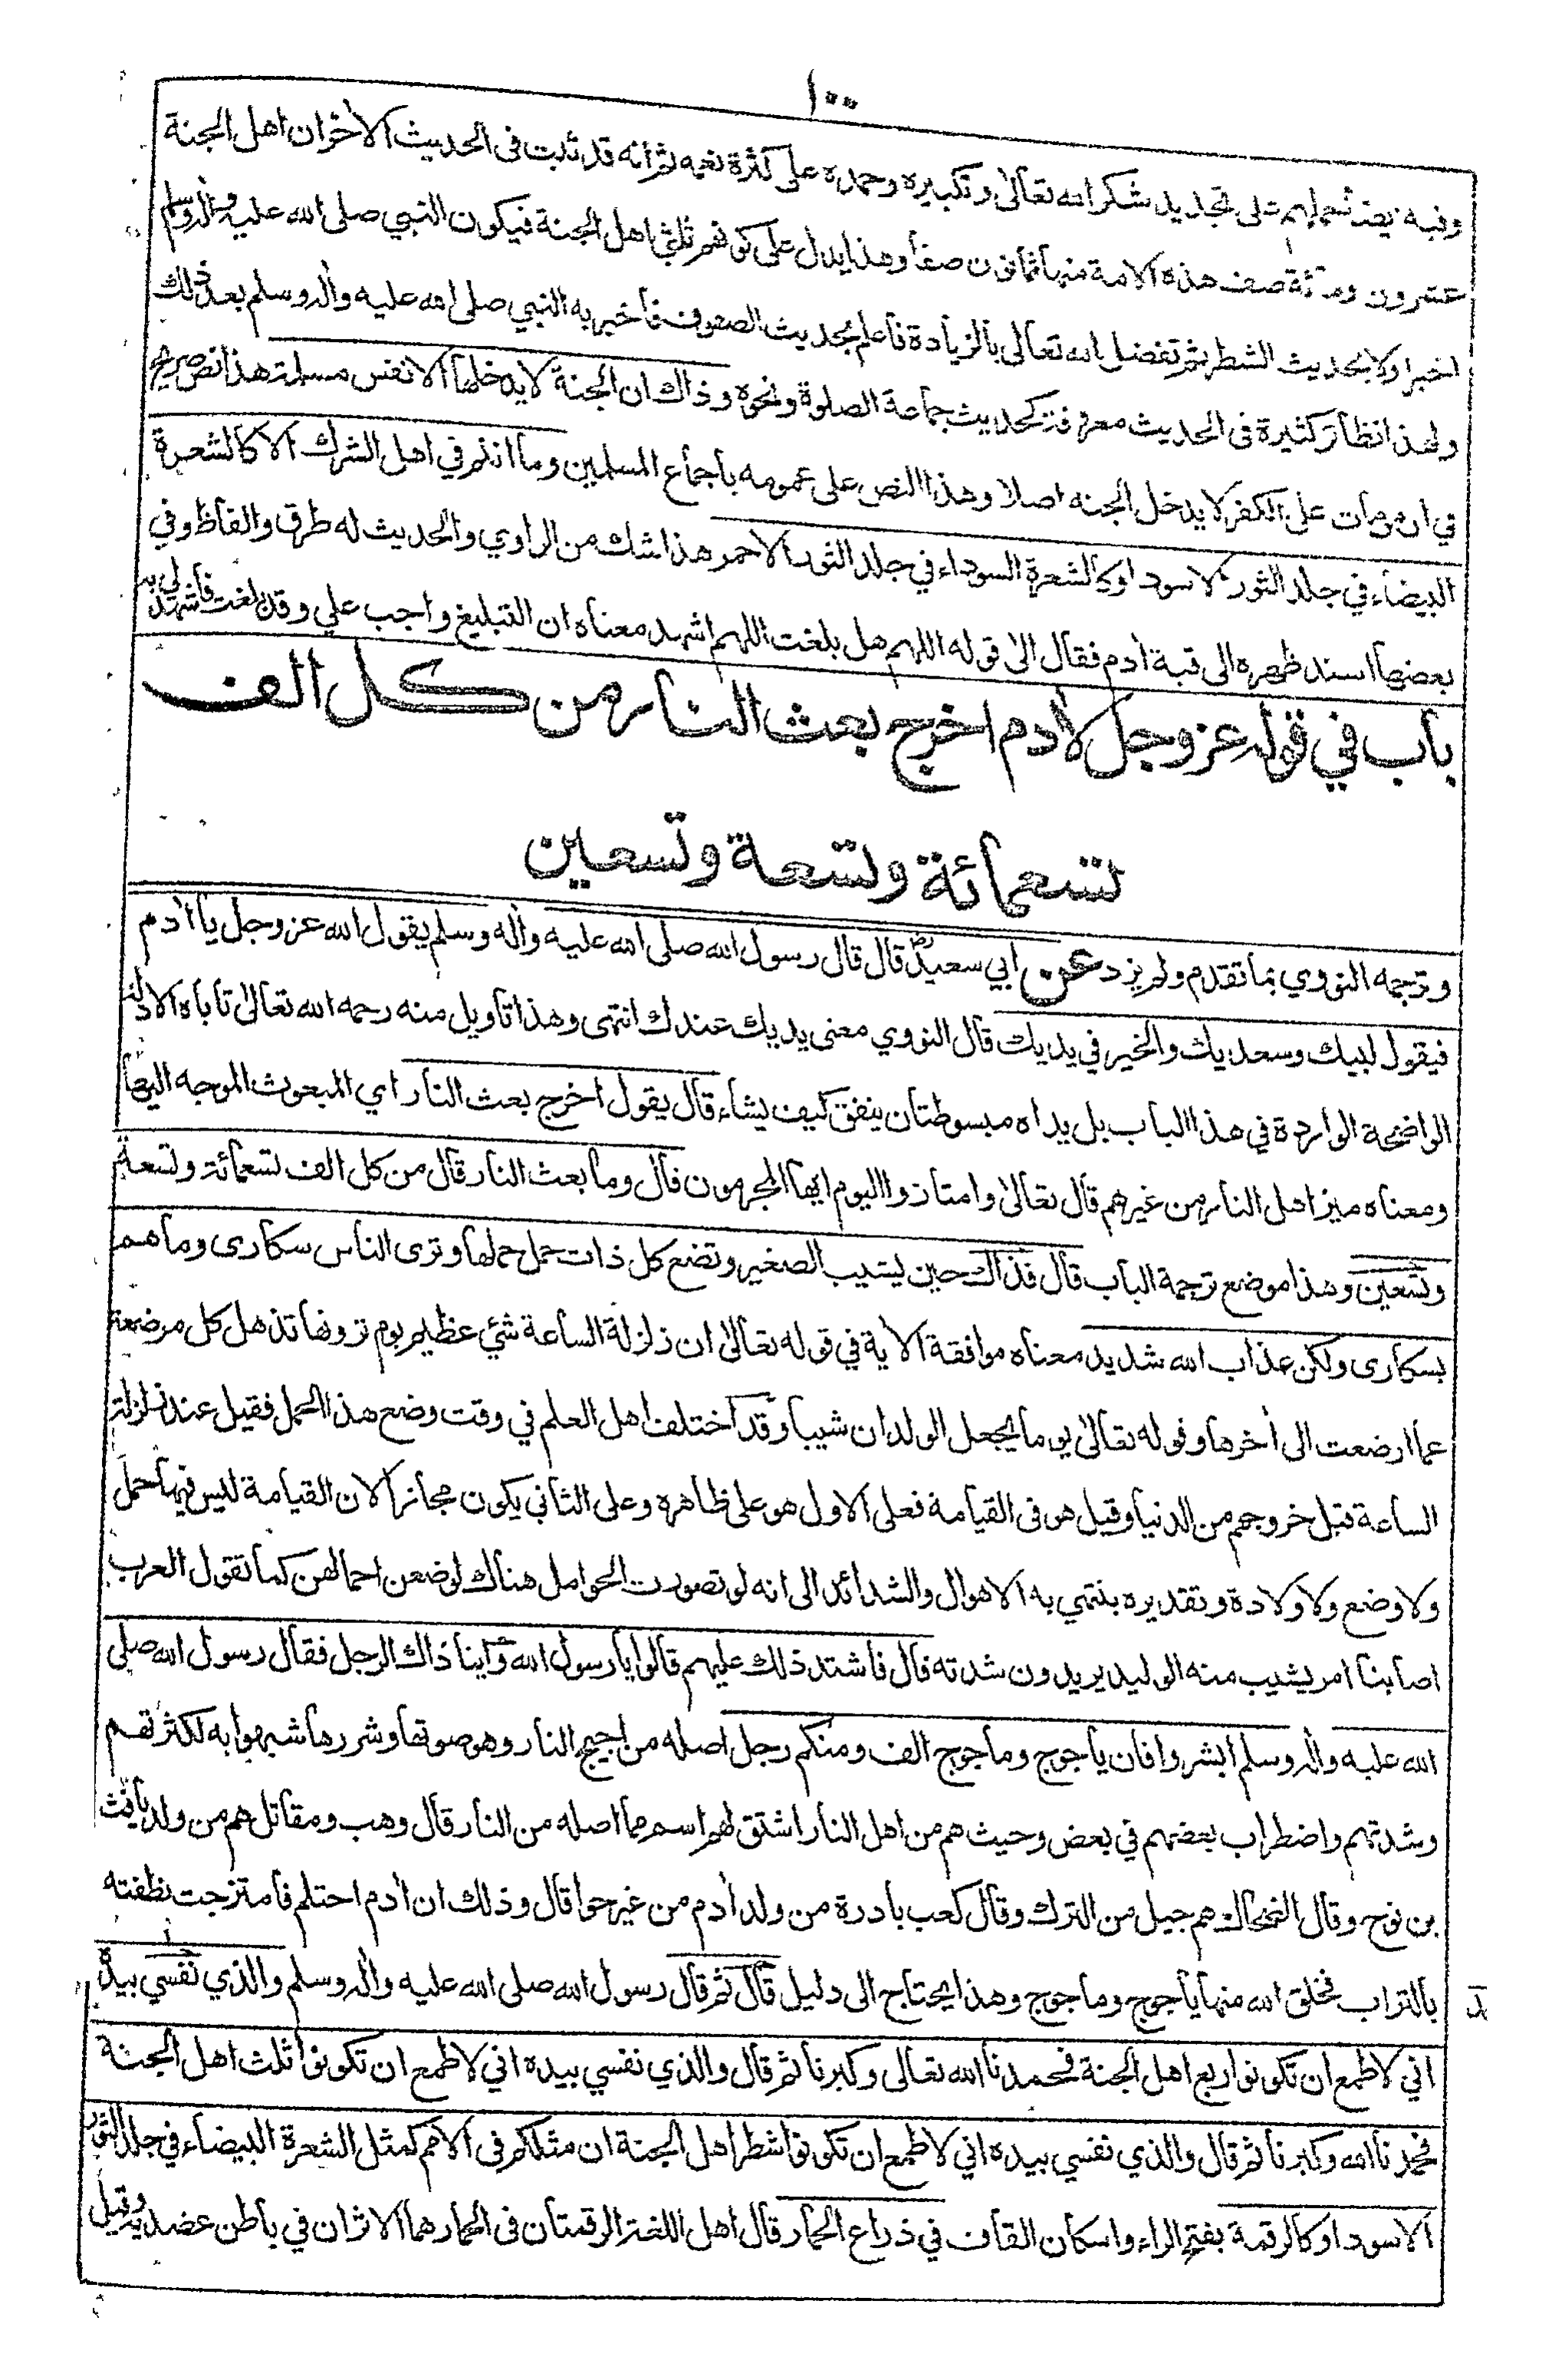 ١٠٠
وفيه ايضا حملهم على تجديد شكر الله تعالى وتكبيره وحمده على كثرة نعمه ثم انه قد ثبت فى الحديث الأخر ان اهل الجنة
عشرون ومائة صف هذه الامة منها ثمانون صفا وهذا يدل على كونهم ثلثي اهل الجنة فيكون النبي صلى الله عليه وأله وسلم
اخبر اولا بحديث الشطر ثم تفضل الله تعالى بالزيادة فاعلم بحديث الصفوف فأخبر به النبي صلى الله عليه وأله وسلم بعد ذلك
ولهذا نظائر كثيرة فى الحديث معروفة كحديث جماعة الصلوة ونحوه وذاك ان الجنة لا يدخلها الا نفس مسلمة هذا نص صريح
في ان من مات على الكفر لا يدخل الجنه اصلا وهذا النص على عمومه بأجماع المسلمين وما انتم في اهل الشرك الا كالشعرة
البيضاء في جلد الثور الاسود او كالشعرة السوداء في جلد الثور الاحمر هذا شك من الراوي والحديث له طرق والفاظ وفي
بعضها اسند ظهره الى قبة أدم فقال الى قوله اللهم هل بلغت اللهم اشهد معناه ان التبليغ واجب علي وقد بلغت فاشهد لي به
باب في قوله عز وجل لأدم اخرج بعث النار من كل الف
تسعمائة وتسعة وتسعين
وترجمه النووي بما تقدم ولم يزد عن ابي سعيد رض قال قال رسول الله صلى الله عليه وأله وسلم يقول الله عز وجل يا أدم
فيقول لبيك وسعديك والخير في يديك قال النووي معنى يديك عندك انتهى وهذا تأويل منه رحمه الله تعالى تأباه الادلة
الواضحة الواردة في هذا الباب بل يداه مبسوطتان ينفق كيف يشاء قال يقول اخرج بعث النار اي المبعوث الموجه اليها
ومعناه ميز اهل النار من غيرهم قال تعالى وامتازوا اليوم ايها المجرمون قال وما بعث النار قال من كل الف تسعمائة وتسعة
وتسعين وهذا موضع ترجمة الباب قال فذاك حين يشيب الصغير وتضع كل ذات حمل حملها وترى الناس سكارى وما هم
بسكارى ولكن عذاب الله شديد معناه موافقة الأية في قوله تعالى ان زلزلة الساعة شئ عظيم يوم ترونها تذهل كل مرضعة
عما ارضعت الى أخرها وقوله تعالى يوما يجعل الولدان شيبا وقد اختلف اهل العلم في وقت وضع هذا الحمل فقيل عند زلزلة
الساعة قبل خروجهم من الدنيا وقيل هو فى القيامة فعلى الاول هو على ظاهره وعلى الثاني يكون مجازا لان القيامة ليس فيها حمل
ولا وضع ولا ولادة وتقديره ينتهي به الاهوال والشدائد الى انه لو تصورت الحوامل هناك لوضعن احمالهن كما تقول العرب
اصابنا امر يشيب منه الوليد يريدون شدته قال فاشتد ذلك عليهم قالوا يا رسول الله وأينا ذاك الرجل فقال رسول الله صلى
الله عليه وأله وسلم ابشروا فان يأجوج ومأجوج الف ومنكم رجل اصله من اجيج النار وهو صوتها وشررها شبهوا به لكثرتهم
وشدتهم واضطراب بعضهم في بعض وحيث هم من اهل النار اشتق لهم اسم مما اصله من النار قال وهب ومقاتل هم من ولد يافث
بن نوح وقال الضحاك هم جيل من الترك وقال كعب بادرة من ولد أدم من غير حوا قال وذلك ان أدم احتلم فامتزجت نطفته
بالتراب فخلق الله منها يأجوج ومأجوج وهذا يحتاج الى دليل قال ثم قال رسول الله صلى الله عليه وأله وسلم والذي نفسي بيده
اني لاطمع ان تكونوا ربع اهل الجنة فحمدنا الله تعالى وكبرنا ثم قال والذي نفسي بيده اني لاطمع ان تكونوا ثلث اهل الجنة
فحمدنا الله وكبرنا ثم قال والذي نفسي بيده اني لاطمع ان تكونوا شطر اهل الجنة ان مثلكم فى الامم كمثل الشعرة البيضاء في جلد الثور
الاسود او كالرقمة بفتح الراء واسكان القاف في ذراع الحمار قال اهل اللغة الرقمتان فى الحمار هما الاثران في باطن عضديه وقيل